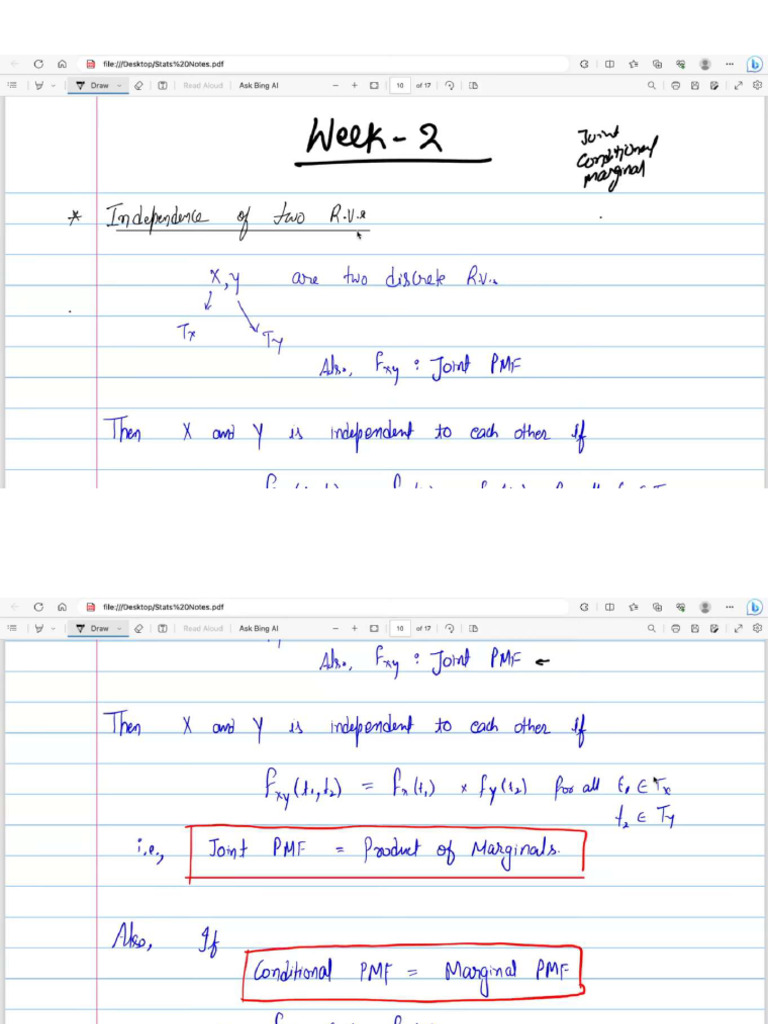 file:///Desktop/Stats%20Notes.pdf
Draw Read Aloud Ask Bing AI 10 of 17
Week - 2
Joint
Conditional
Marginal
* Independence of two R.V.s
X, Y are two discrete R.V.s
Tx
Ty
Also, fxy : Joint PMF
Then X and Y is independent to each other if
file:///Desktop/Stats%20Notes.pdf
Draw Read Aloud Ask Bing AI 10 of 17
Also, fxy : Joint PMF ←
Then X and Y is independent to each other if
fxy(t₁,t₂) = fx(t₁) × fy(t₂) for all t₁ ∈ Tx
t₂ ∈ Ty
i.e., Joint PMF = Product of Marginals.
Also, If
Conditional PMF = Marginal PMF